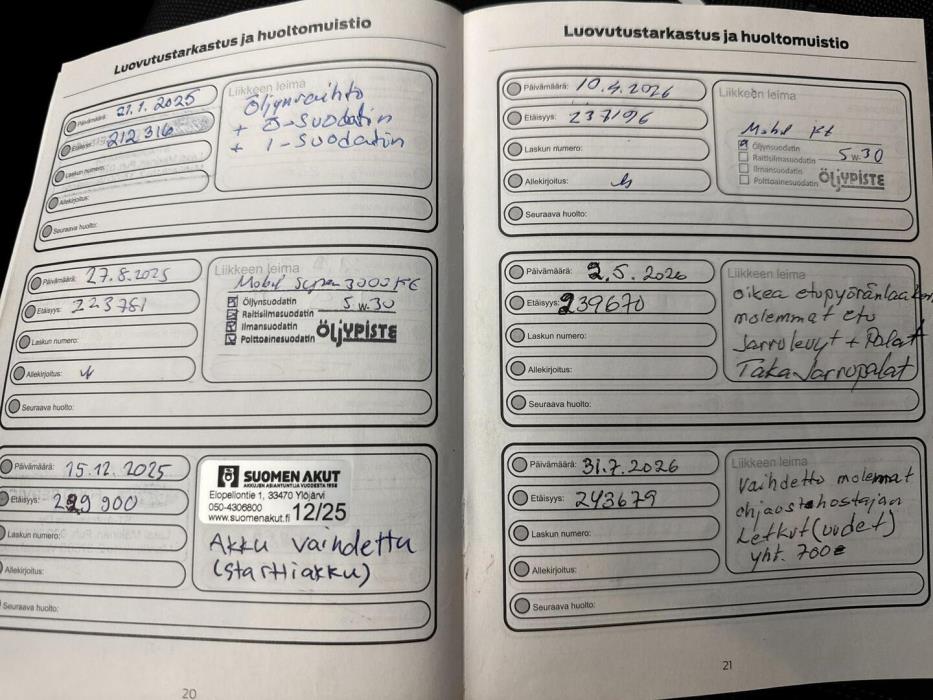 Luovutustarkastus ja huoltomuistio
Päivämäärä: 21.1.2025
Etäisyys: 212 316
Laskun numero:
Allekirjoitus:
Seuraava huolto:
Liikkeen leima
Öljynvaihto
+ Ö-Suodatin
+ I-Suodatin
Päivämäärä: 27.8.2025
Etäisyys: 223781
Laskun numero:
Allekirjoitus:
Seuraava huolto:
Liikkeen leima
Mobil Super 3000
Öljynsuodatin 5W.30
Raitisilmasuodatin
Ilmansuodatin
Polttoainesuodatin ÖLJYPISTE
Päivämäärä: 15.12.2025
Etäisyys: 229 900
Laskun numero:
Allekirjoitus:
Seuraava huolto:
SUOMEN AKUT
AKKUJEN ASIANTUNTIJA VUODESTA 1998
Elopellontie 1, 33470 Ylöjärvi
050-4306800
www.suomenakut.fi 12/25
Akku vaihdettu
(starttiakku)
20
Luovutustarkastus ja huoltomuistio
Päivämäärä: 10.4.2026
Etäisyys: 237196
Laskun numero:
Allekirjoitus:
Seuraava huolto:
Liikkeen leima
Mobil
Öljynsuodatin 5W.30
Raitisilmasuodatin
Ilmansuodatin
Polttoainesuodatin ÖLJYPISTE
Päivämäärä: 2.5.2026
Etäisyys: 239670
Laskun numero:
Allekirjoitus:
Seuraava huolto:
Liikkeen leima
oikea etupyöränlaakeri
molemmat etu
Jarrulevyt + Palat
Takajarrupalat
Päivämäärä: 31.7.2026
Etäisyys: 243679
Laskun numero:
Allekirjoitus:
Seuraava huolto:
Liikkeen leima
Vaihdettu molemmat
ohjaustehostajan
Letkut (uudet)
yht. 700€
21